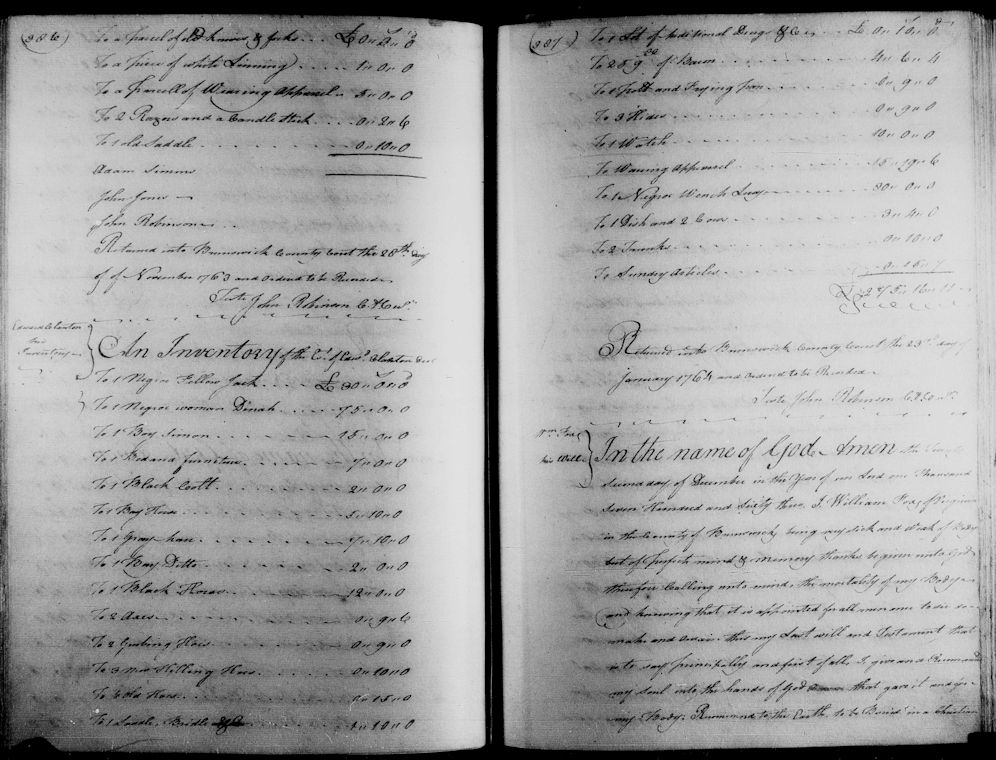 (386)
To a parcel of old knives & forks . . . £0 " 2 " 0
To a piece of white Linning . . . . . 1 " 0 " 0
To a parcell of Wearing Apparel . 5 " 0 " 0
To 2 Razors and a Candle stick . . . 0 " 2 " 6
To 1 old Saddle . . . . . . 0 " 10 " 0
Adam Simms
John Jones
John Robinson
Returned into Brunswick County Court the 28th Day
of November 1763 and Ordered to be Recorded
Teste John Robinson
Edward Clanton
his
Inventory
An Inventory of the Est. of Edwd. Clanton Decd
To 1 Negroe Fellow Jack . . . . £30 " 0 " 0
To 1 Negroe woman Dinah . . . . 75 " 0 " 0
To 1 Boy Simon . . . . . 25 " 0 " 0
To 1 Bed and furniture . . . . 7 " 0 " 0
To 1 Black Coolt . . . . . 2 " 0 " 0
To 1 Bay Horse . . . . . 5 " 10 " 0
To 1 Gray Mare . . . . . 7 " 10 " 0
To 1 Bay Ditto . . . . . 2 " 0 " 0
To 1 Black Horse . . . . . 12 " 0 " 0
To 2 Axes . . . . . 0 " 9 " 6
To 2 Grubing Hoes . . . . 0 " 9 " 0
To 3 new Hilling Hoes . . . . 0 " 10 " 0
To 6 old Hoes . . . . 0 " 15 " 0
To 1 Saddle, Bridle . . . . 1 " 10 " 0
(387)
To 1 of Additional Drugs &c . . £0 " 10 " 0
To 259 of Bacon . . . . . 4 " 6 " 4
To 1 pott and Frying pan . . . . 0 " 9 " 0
To 3 Hides . . . . . 0 " 9 " 0
To 1 Watch . . . . . 10 " 0 " 0
To Wearing Apparel . . . . 15 " 19 " 6
To 1 Negroe Wench Lucy . . . . 30 " 0 " 0
To 1 Dish and 2 Cows . . . . 3 " 4 " 0
To 2 Trunks . . . . 0 " 10 " 0
To Sundry Articles . . . . 0 " 15 " 7
£275 " 16 " 11
Returned into Brunswick County Court the 23d day of
January 1764 and ordered to be Recorded
Teste John Robinson
Wm. Fox
his Will
In the name of God Amen the Twenty
Second day of December in the Year of our Lord one Thousand
Seven Hundred and Sixty three, I William Fox of Virginia
in the County of Brunswick, being very sick and Weak of Body
but of perfect mind & memory thanks be given unto God
therefore Calling unto mind the mortality of my Body
and knowing that it is appointed for all men once to die do
make and Ordain this my Last will and Testament that
is to say principally and first of all, I give and Recommend
my Soul into the hands of God that gave it and for
my Body, Recommend to the Earth, to be Buried in a Christian